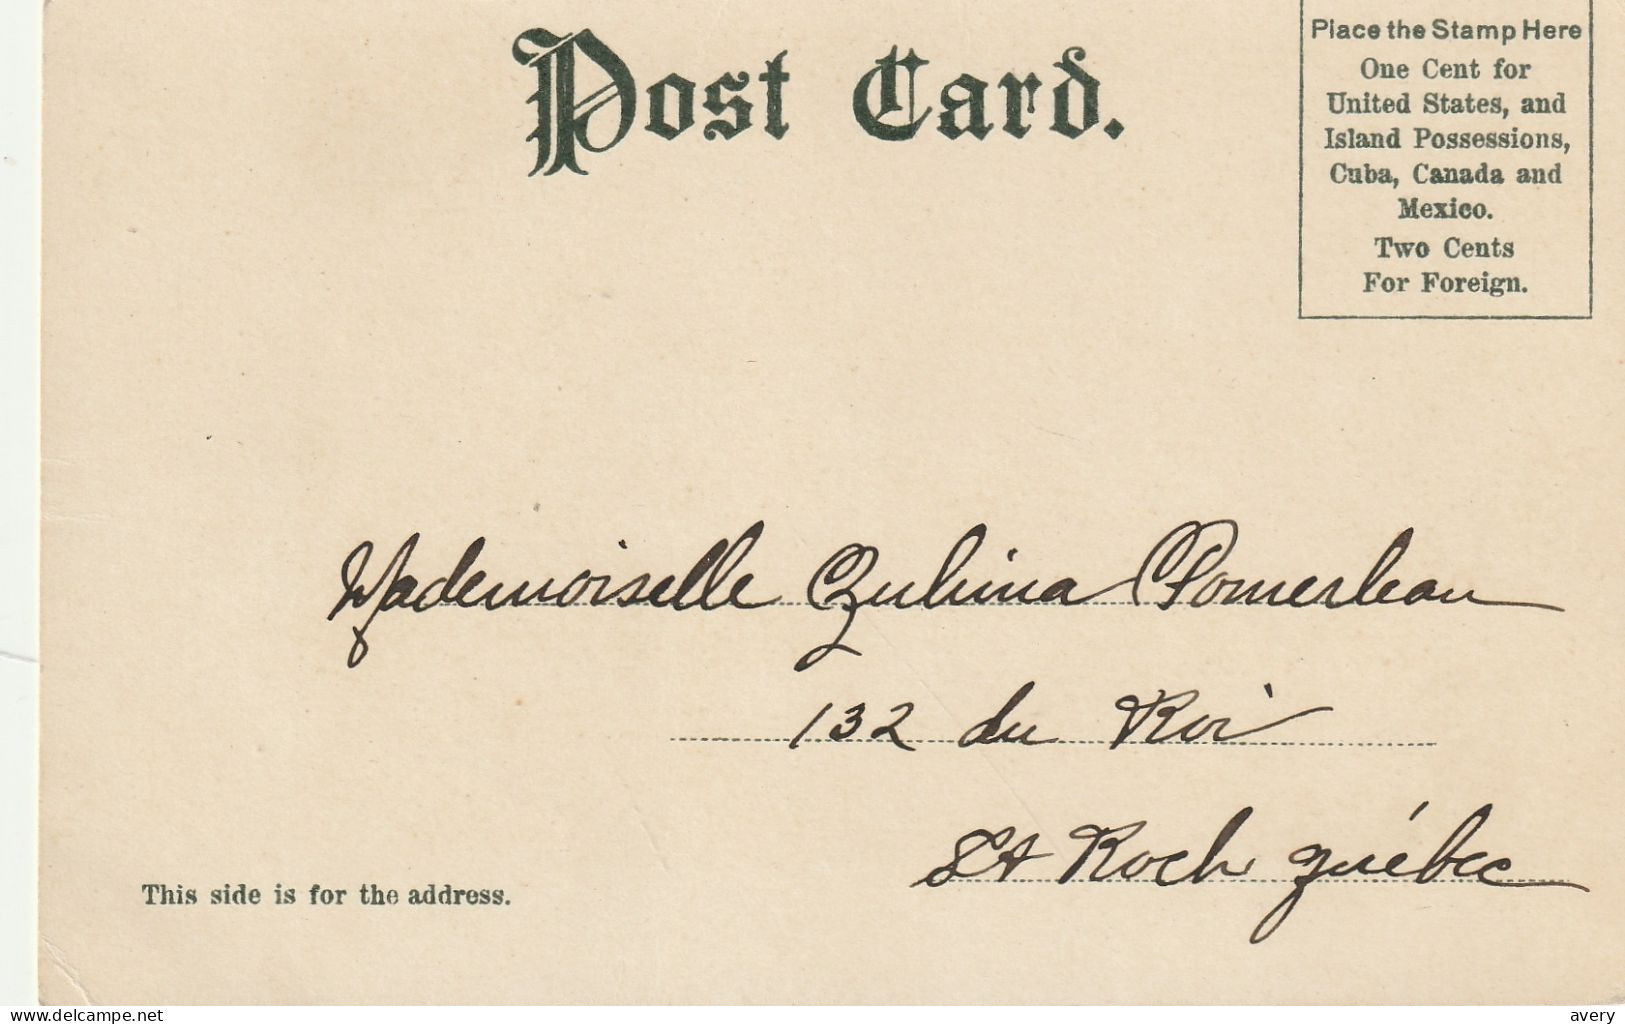 Post Card.
Place the Stamp Here
One Cent for
United States, and
Island Possessions,
Cuba, Canada and
Mexico.
Two Cents
For Foreign.
Mademoiselle Zulima Pomerleau
132 du Roi
St Roch Québec
This side is for the address.
www.delcampe.net
avery